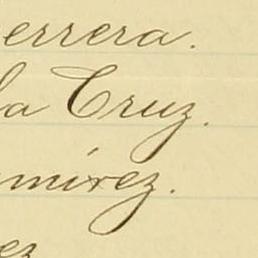 errera.
la Cruz.
amírez.
ez